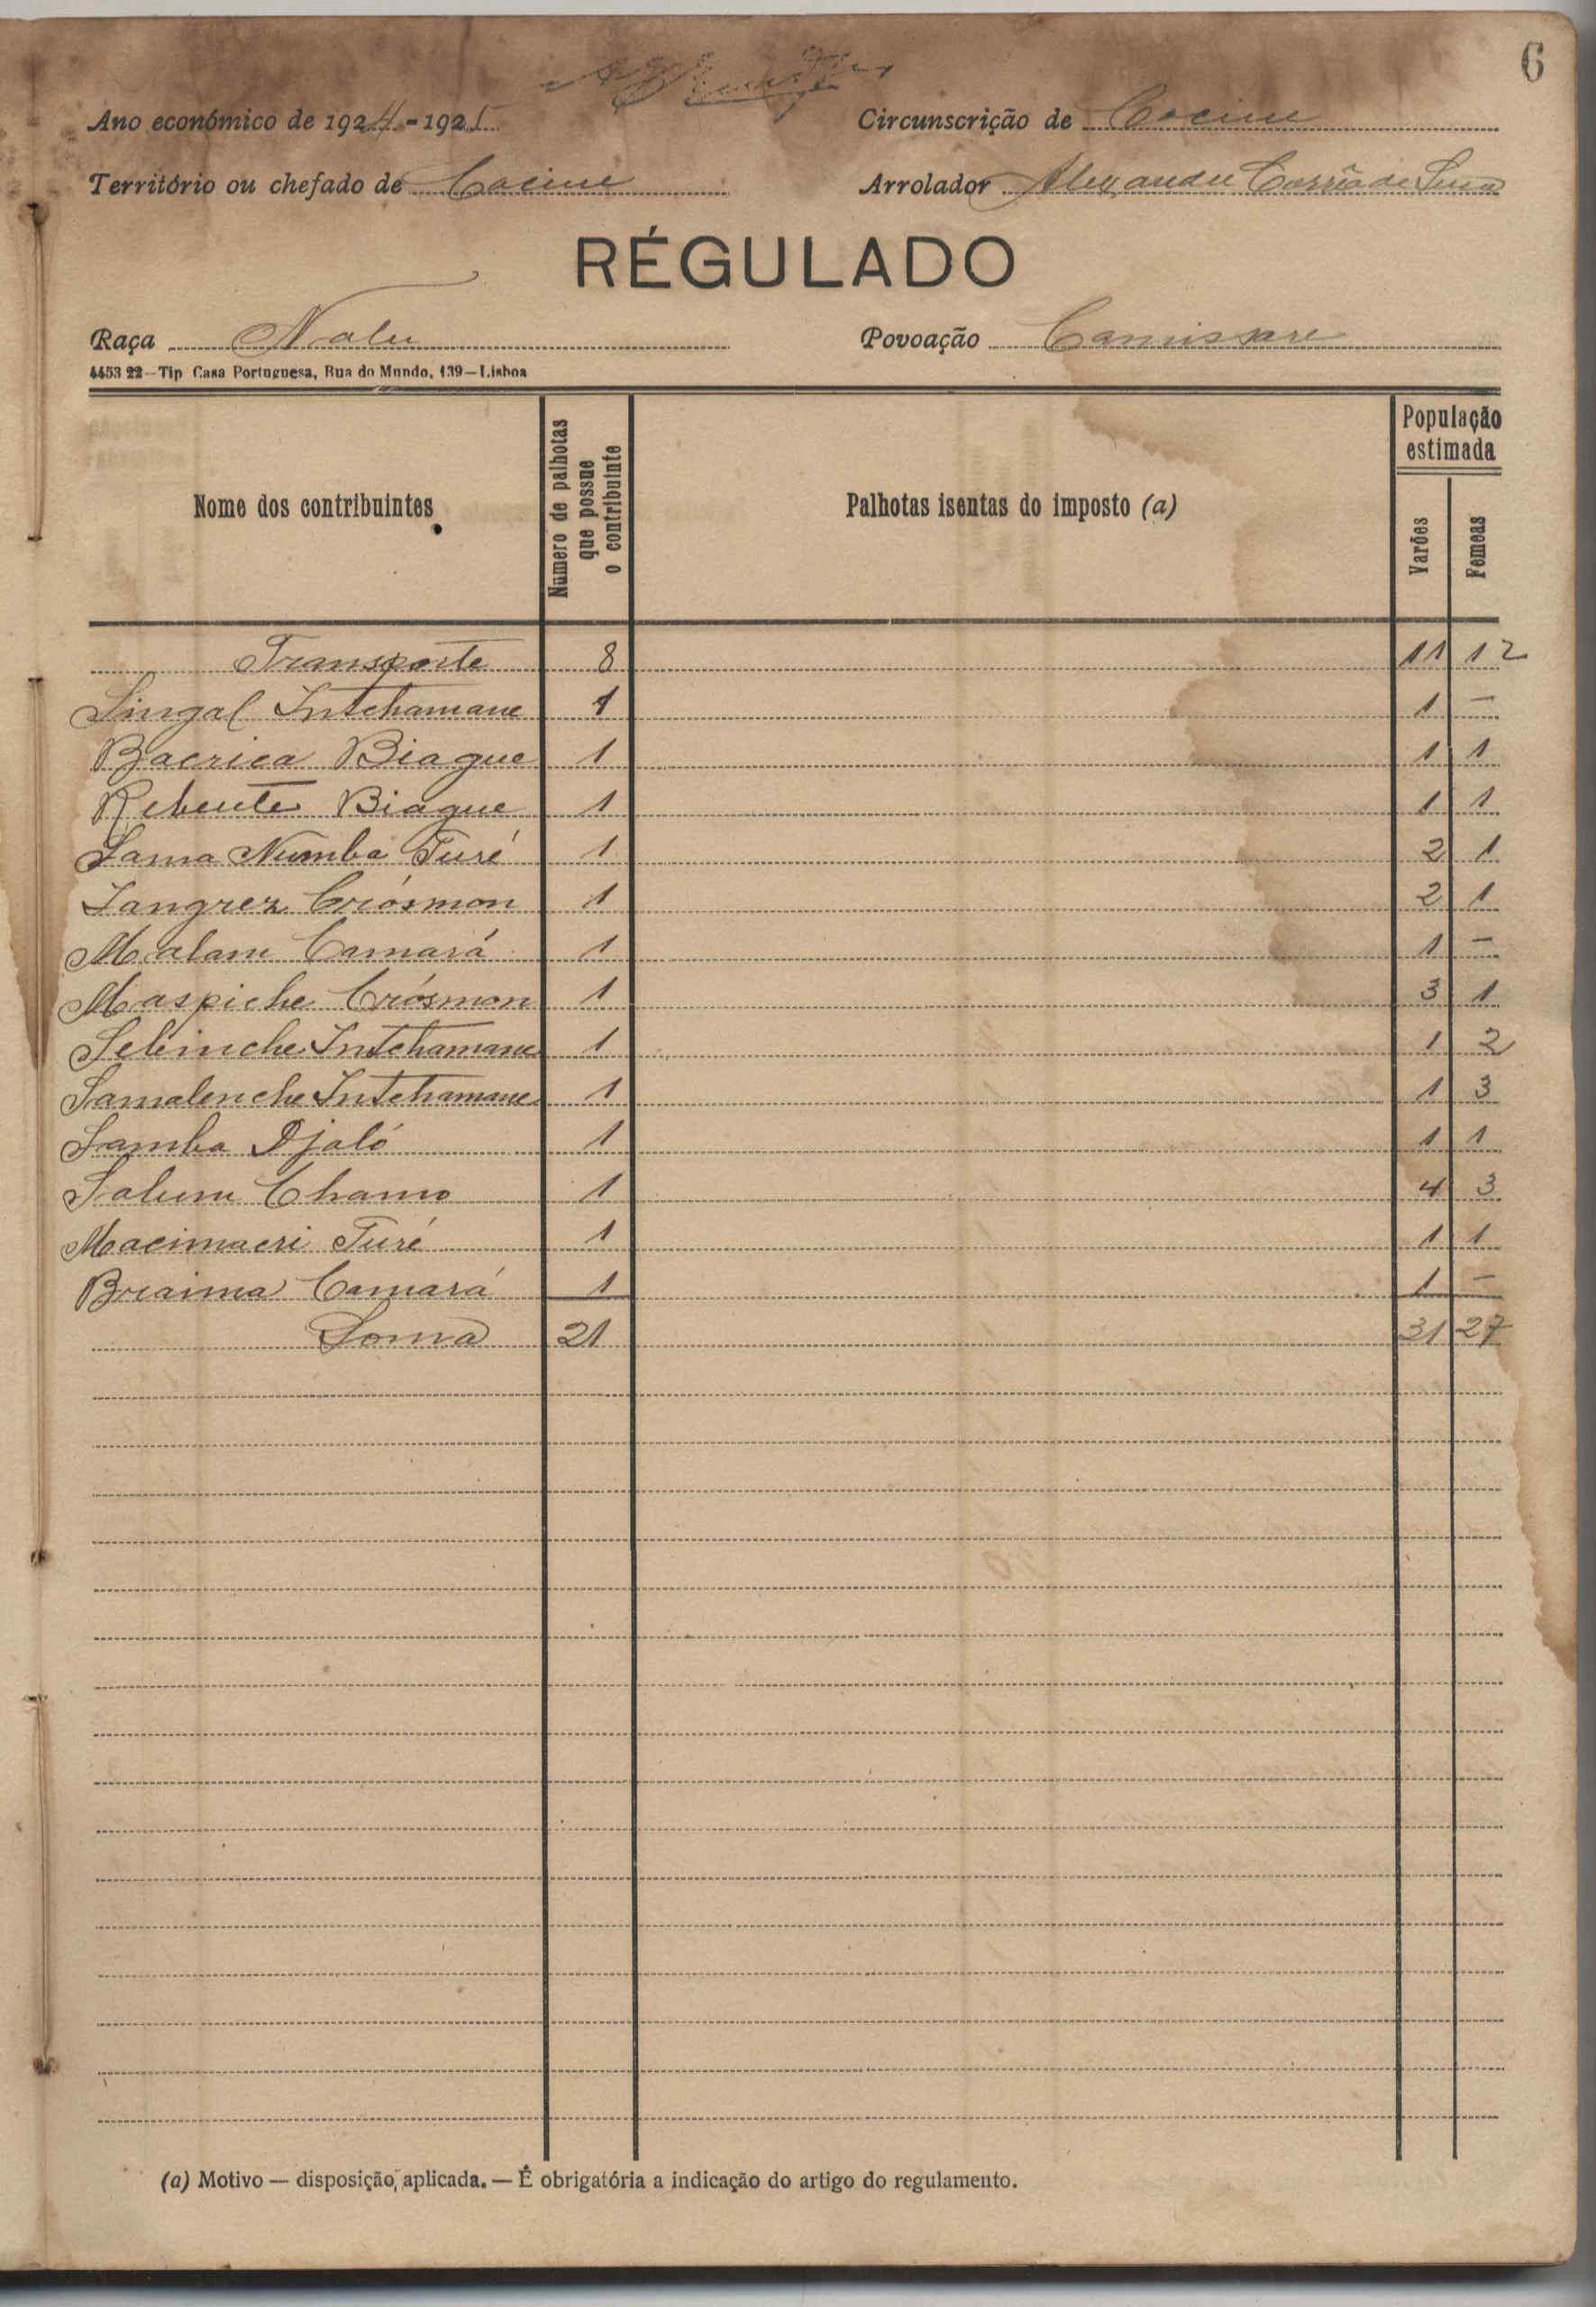 6
Ano económico de 1924-1925
Circunscrição de Cacine
Território ou chefado de Cacine
Arrolador Alexandre Corrêa de
RÉGULADO
Raça Nalu
Povoação Camissare
4453 22—Tip Casa Portuguesa, Rua do Mundo, 139—Lisboa
Nome dos contribuintes
Número de palhotas que possue o contribuinte
Palhotas isentas do imposto (a)
População estimada
Varões
Femeas
Transporte 8 11 12
Singal Intchamane 1 1 —
Bacrica Biague 1 1 1
Rebente Biague 1 1 1
Sana Numba Turé 1 2 1
Tangrez Criósmon 1 2 1
Malam Camará 1 1 —
Maspiche Criósmon 1 3 1
Selinche Intchamane 1 1 2
Samalenche Intchamane 1 1 3
Samba Djaló 1 1 1
Salum Chamo 1 4 3
Macimacri Turé 1 1 1
Braima Camará 1 1 —
Soma 21 31 27
(a) Motivo — disposição, aplicada. — É obrigatória a indicação do artigo do regulamento.